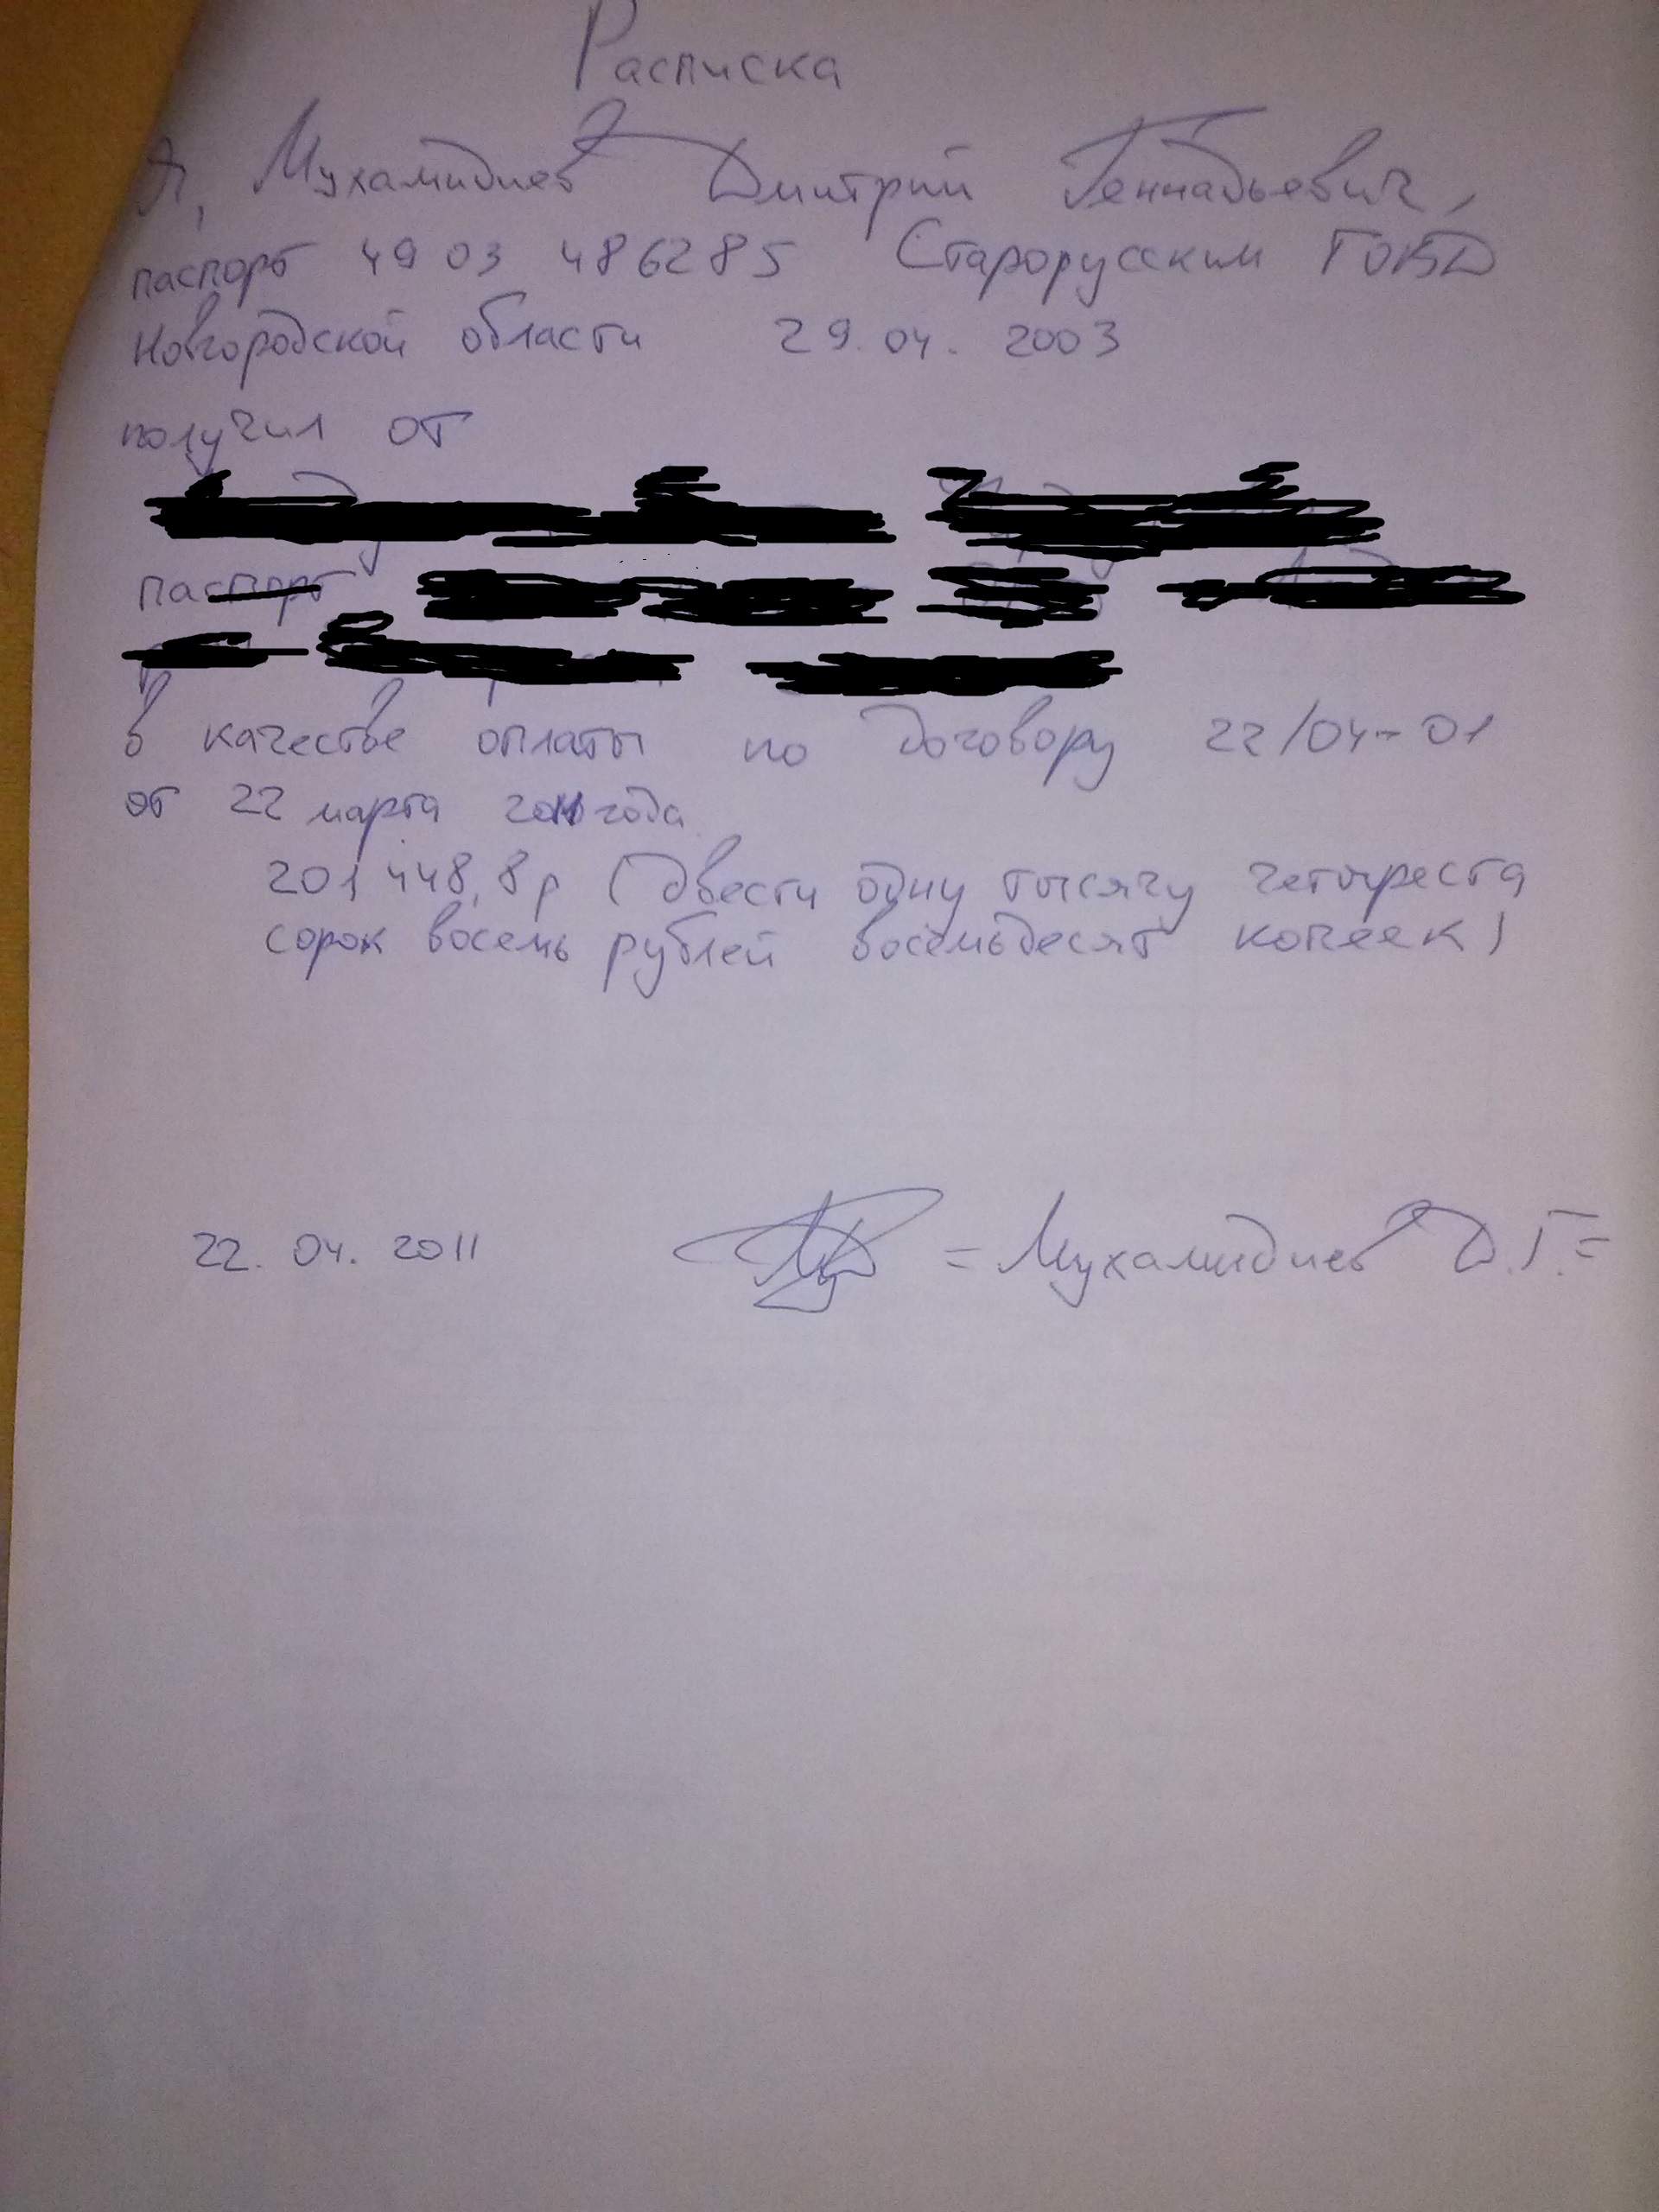 Расписка
Я, Мухамидиев Дмитрий Геннадьевич,
паспорт 49 03 486285 Старорусским ГОВД
Новгородской области 29.04.2003
получил от
паспорт
в качестве оплаты по договору 22/04-01
от 22 марта 2011 года
201 448,8 р (двести одну тысячу четыреста
сорок восемь рублей восемьдесят копеек)
22.04.2011 = Мухамидиев Д.Г. =